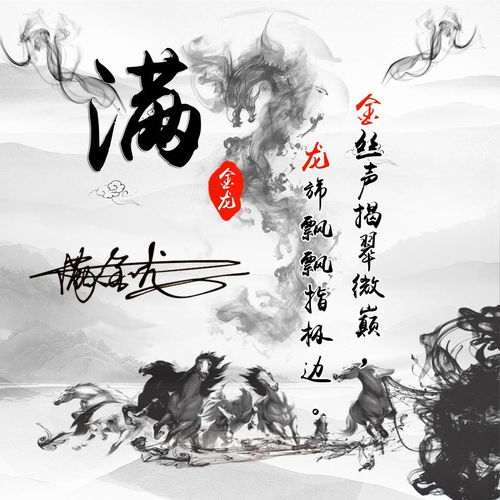 满
金龙
满金龙
金丝声揭翠微巅，
龙旆飘飘指极边。